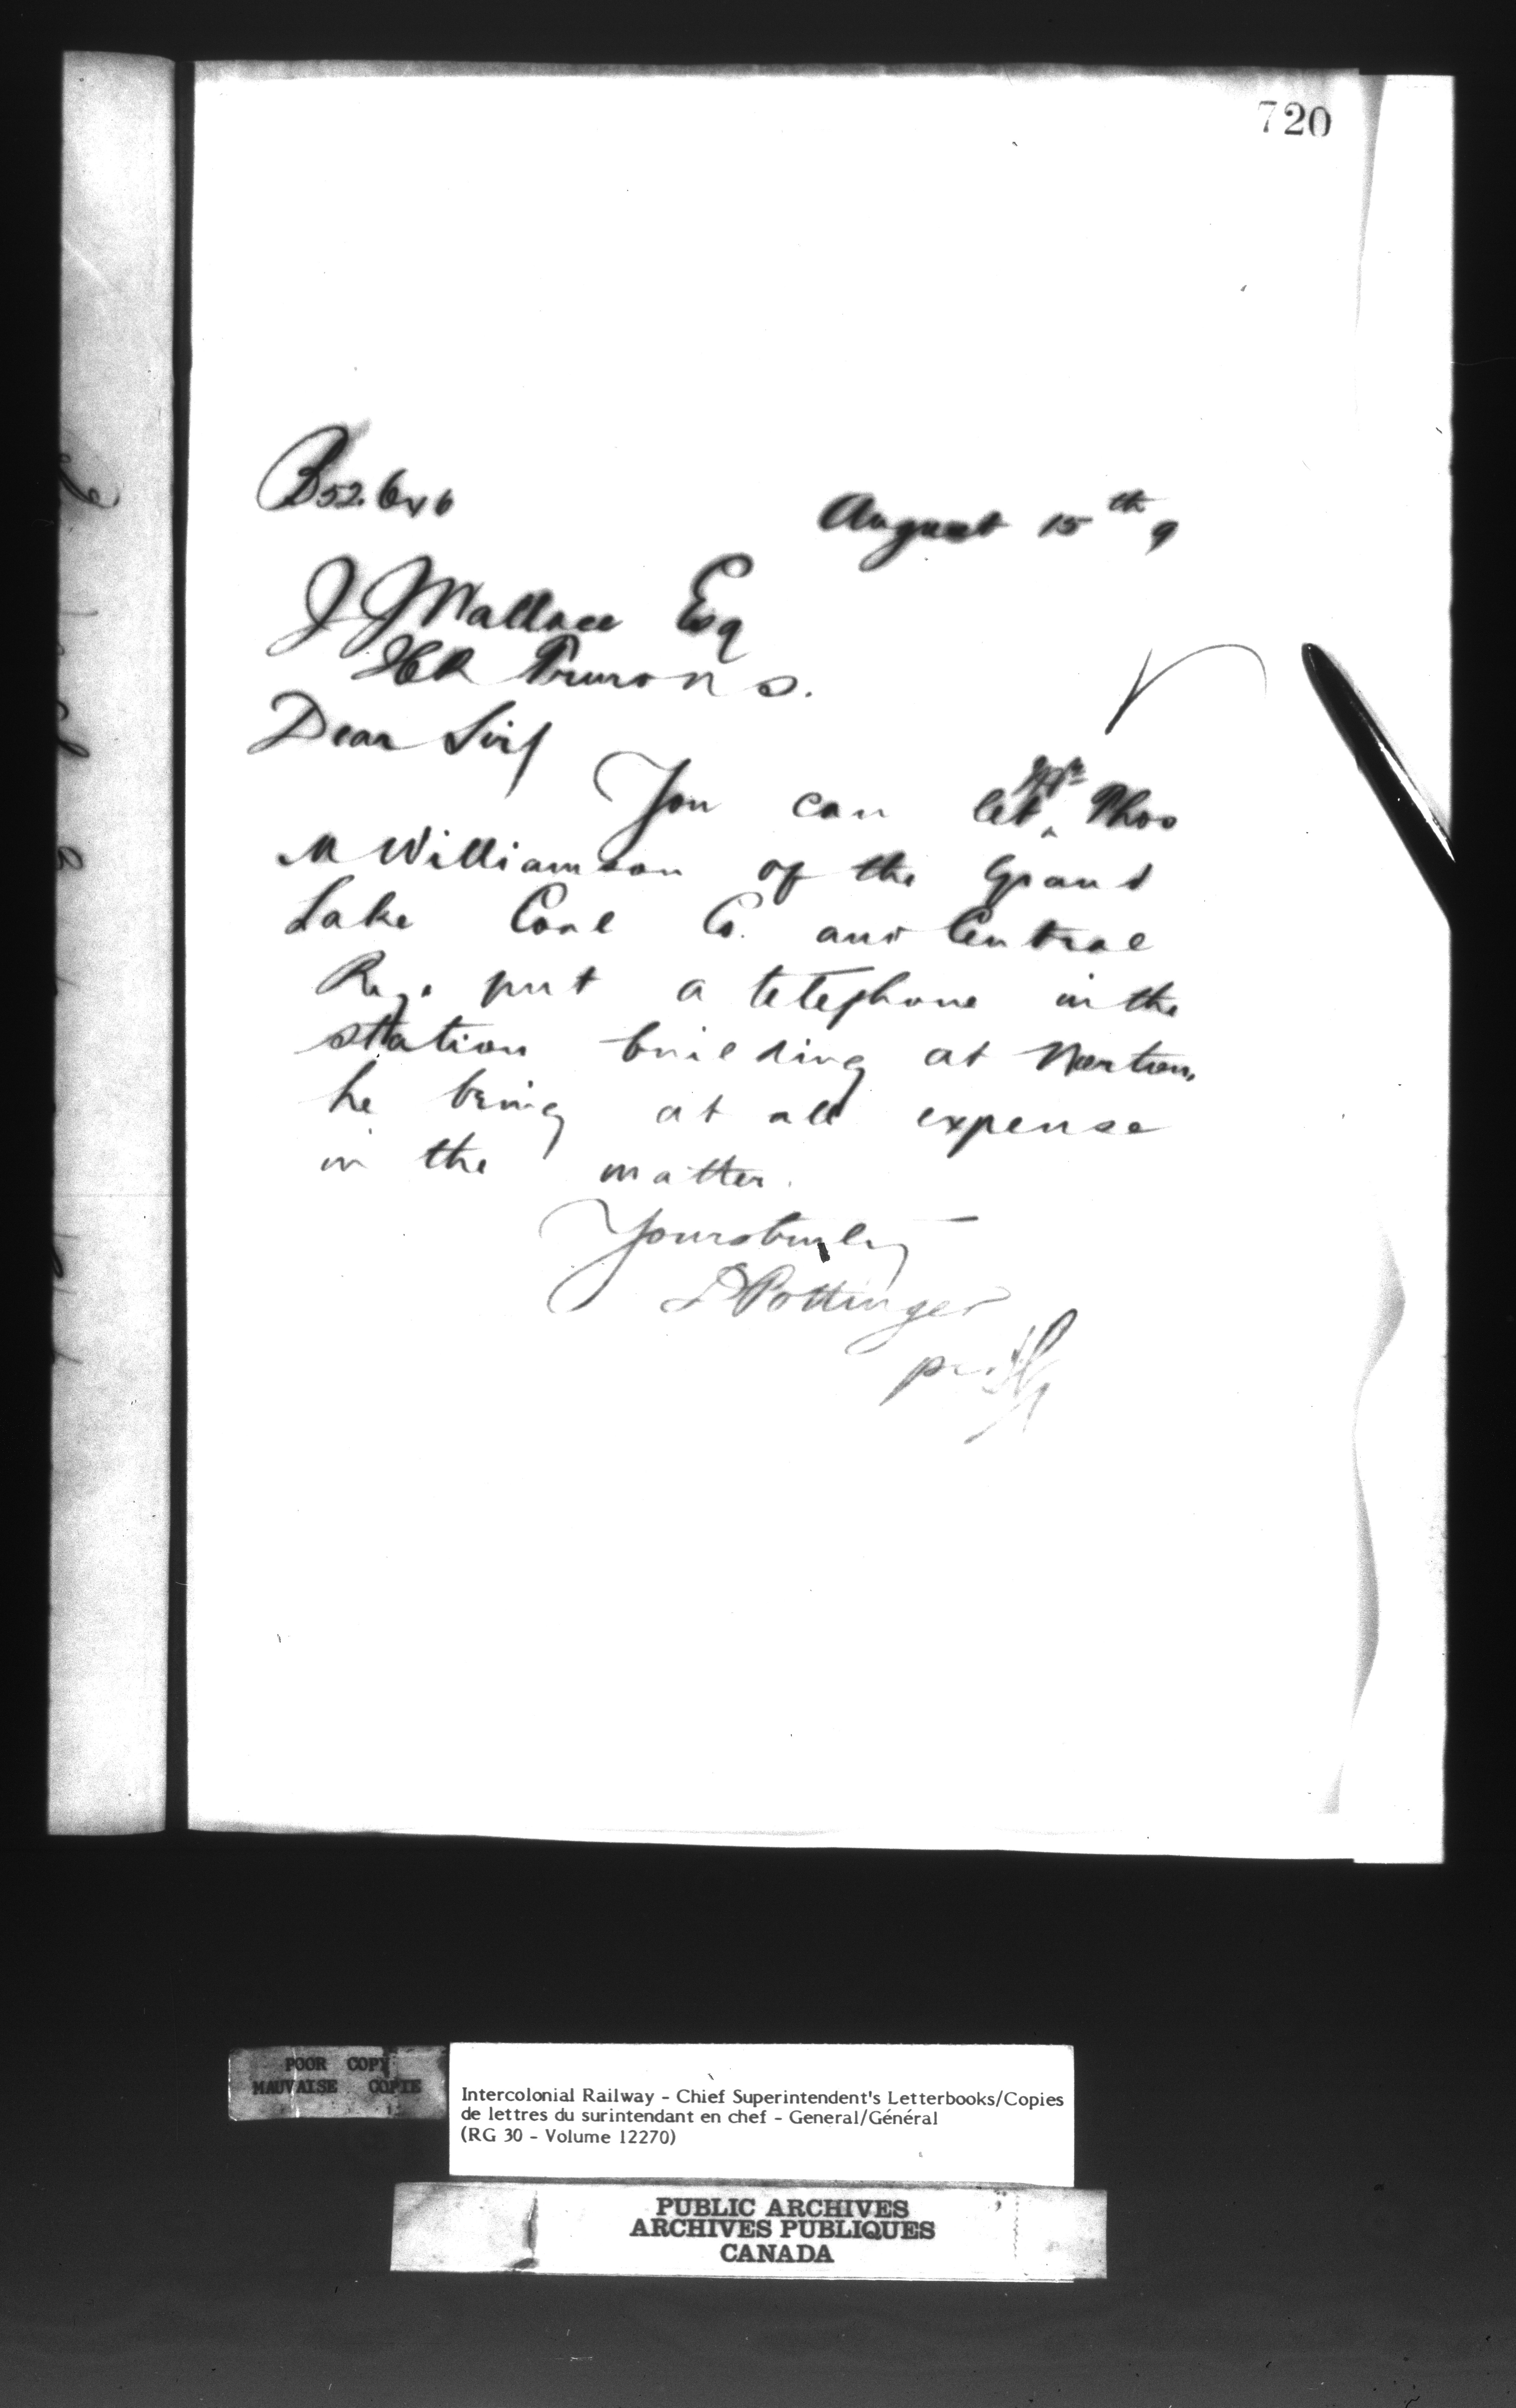 720
B52.6v6
August 15th 9
J J Wallace Esq
Dear Sir/
You can let Mr Thos
M Williamson of the Grand
Lake Coal Co. and Central
Ry. put a telephone in the
station building at Norton,
he being at all expense
in the matter.
Yours truly
D Pottinger
per
POOR COPY
MAUVAISE COPIE
Intercolonial Railway - Chief Superintendent's Letterbooks/Copies
de lettres du surintendant en chef - General/Général
(RG 30 - Volume 12270)
PUBLIC ARCHIVES
ARCHIVES PUBLIQUES
CANADA